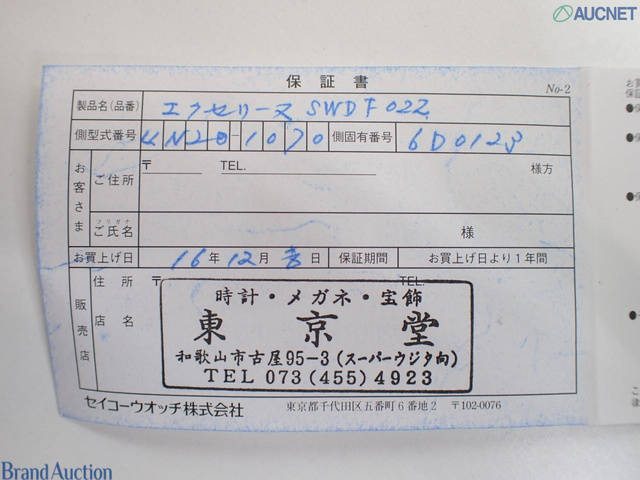 AUCNET
保証書
No-2
製品名(品番) エクセリーヌ SWDF022
側型式番号 4N20-1070 側固有番号 6D0123
お客さま
ご住所 〒 TEL. 様方
フリガナ
ご氏名 様
お買上げ日 16年12月吉日 保証期間 お買上げ日より1年間
販売店
住所 〒 TEL.
店名
時計・メガネ・宝飾
東京堂
和歌山市古屋95-3(スーパーウジタ向)
TEL 073(455)4923
セイコーウオッチ株式会社 東京都千代田区五番町6番地2 〒102-0076
Brand Auction